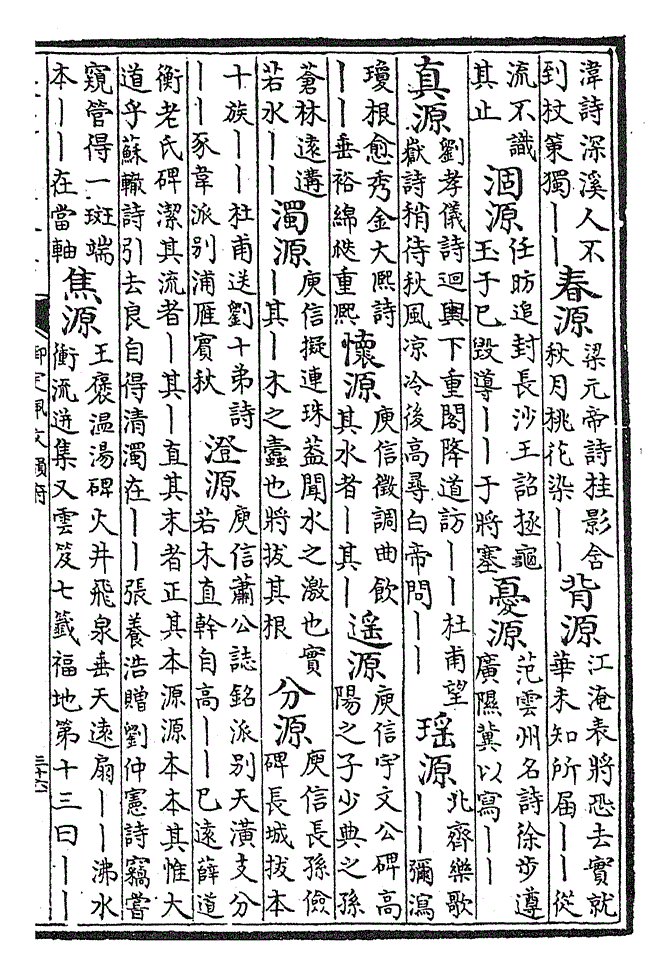 湋詩深溪人不
到杖策獨丨丨
春源
梁元帝詩桂影含
秋月桃花染丨丨
背源
江淹表將恐去實就
華未知所屆丨丨從
流不識
其止
涸源
任昉追封長沙王詔拯龜
玉于已毀導丨丨于將塞
憂源
范雲州名詩徐步遵
廣隰冀以寫丨丨
真源
劉孝儀詩迴輿下重閣降道訪丨丨杜甫望
嶽詩稍待秋風凉冷後高尋白帝問丨丨
瑶源
北齊樂歌
丨丨彌瀉
瓊根愈秀金大熈詩
丨丨垂裕綿㮰重熈
懷源
庾信徵調曲飲
其水者丨其丨
遥源
庾信宇文公碑高
陽之子少典之孫
蒼林遠遘
若水丨丨
濁源
庾信擬連珠葢聞水之激也實
丨其丨木之蠹也將拔其根
分源
庾信長孫儉
碑長城拔本
十族丨丨杜甫送劉十弟詩
丨丨豕韋派别浦雁賓秋
澄源
庾信蕭公誌銘派别天潢支分
若木直幹自高丨丨已遠薛道
衡老氏碑潔其流者丨其丨直其末者正其本源源本本其惟大
道乎蘇轍詩引去良自得清濁在丨丨張養浩贈劉仲憲詩竊嘗
窺管得一斑端
本丨丨在當軸
焦源
王襃温湯碑火井飛泉垂天遠扇丨丨沸水
衝流迸集又雲笈七籖福地第十三曰丨丨
御定佩文韻府
三十六